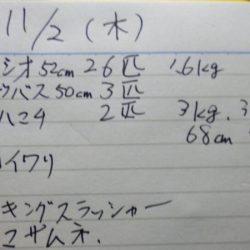 11/2 (木)
シオ 52cm 26匹 1.6kg
ツバス 50cm 3匹
ハミチ 2匹 3kg.3
68cm
イワリ
キングスラッシャー
コザムネ.